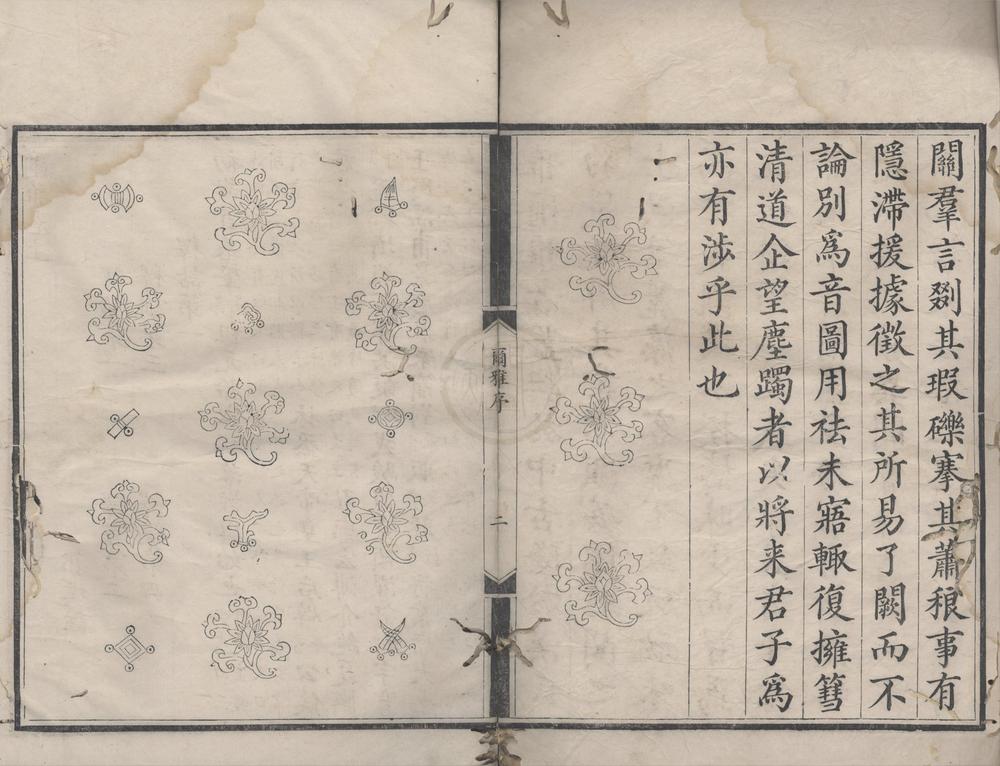 關羣言剟其瑕礫搴其蕭稂事有
隱滯援據徵之其所易了闕而不
論別爲音圖用祛未寤輙復擁篲
清道企望塵躅者以將来君子爲
亦有涉乎此也
爾雅序
二